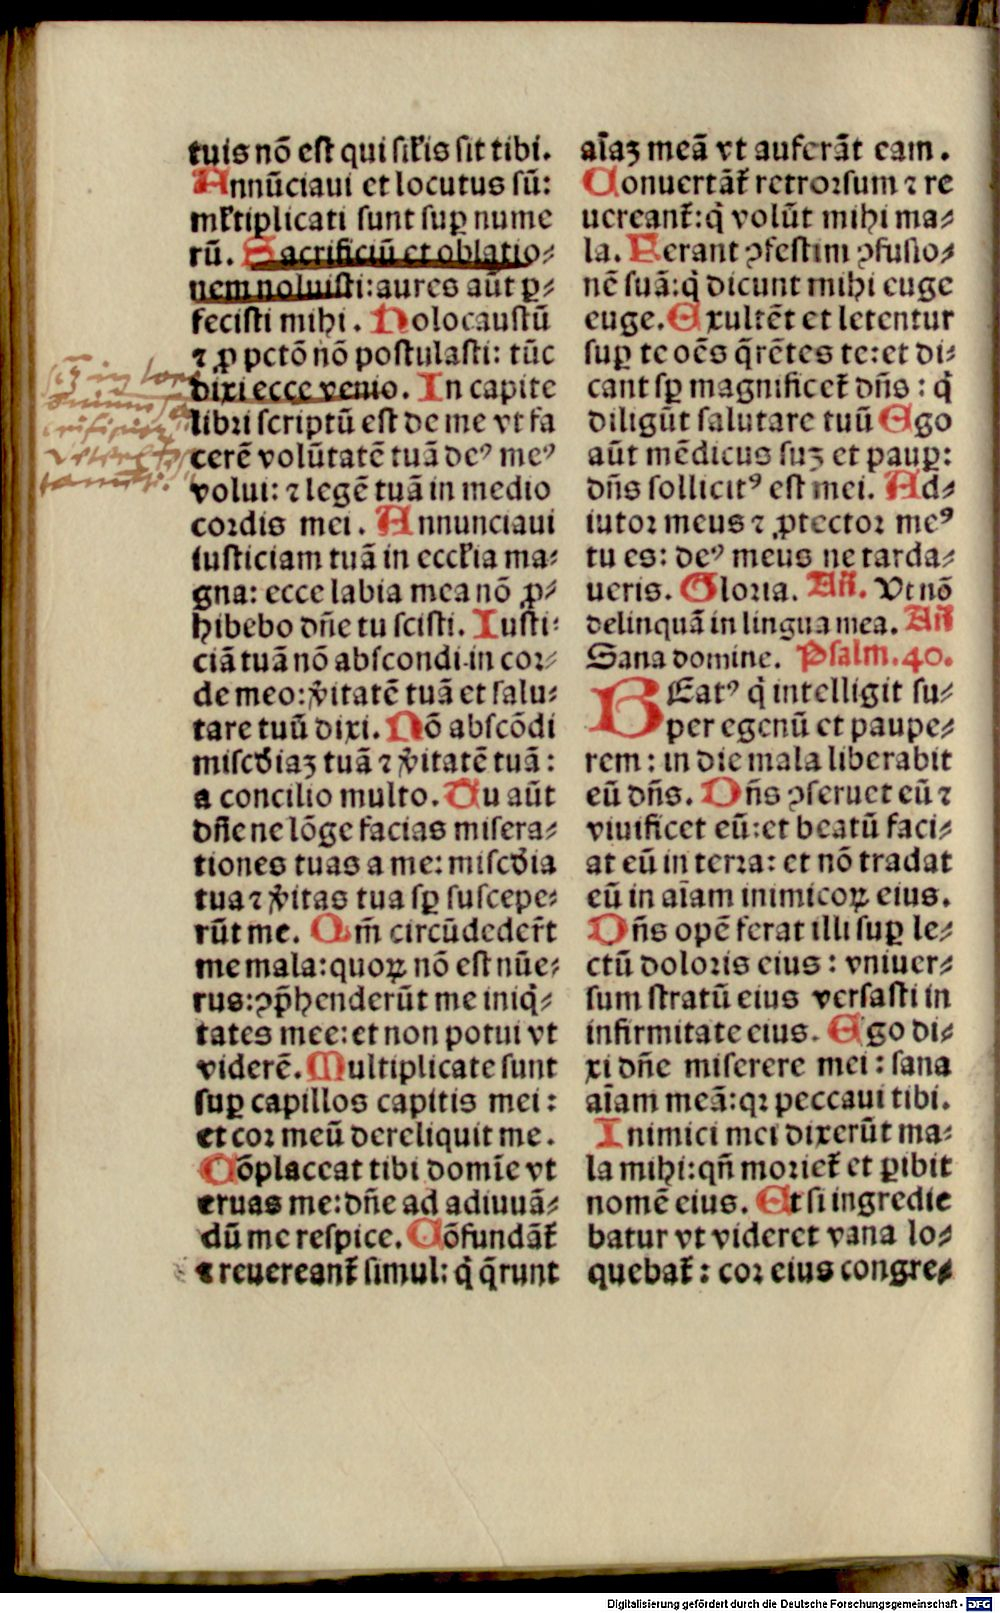 tuis nō est qui sil'is sit tibi.
Annūciaui et locutus sū:
ml'tiplicati sunt suꝑ nume
rū. Sacrificiū et oblatio⸗
nem noluisti: aures aūt ꝑ⸗
fecisti mihi. Holocaustū
⁊ ꝓ pctō nō postulasti: tūc
dixi ecce venio. In capite
libri scriptū est de me vt fa
cerē volūtatē tuā deꝰ meꝰ
volui: ⁊ legē tuā in medio
cordis mei. Annunciaui
iusticiam tuā in eccl'ia ma⸗
gna: ecce labia mea nō ꝓ⸗
hibebo dn̄e tu scisti. Iusti⸗
ciā tuā nō abscondi in cor⸗
de meo: v̓itatē tuā et salu⸗
tare tuū dixi. Nō abscōdi
misc̄diaꝫ tuā ⁊ v̓itatē tuā:
a concilio multo. Tu aūt
dn̄e ne lōge facias misera⸗
tiones tuas a me: misc̄dia
tua ⁊ v̓itas tua sꝑ suscepe⸗
rūt me. Qm̄ circūdeder̄t
me mala: quoꝝ nō est nūe⸗
rus: ꝯp̄henderūt me iniq̇⸗
tates mee: et non potui vt
viderē. Multiplicate sunt
suꝑ capillos capitis mei:
et cor meū dereliquit me.
Cōplaceat tibi domīe vt
eruas me: dn̄e ad adiuuā⸗
dū me respice. Cōfundāt᷑
⁊ reuereant᷑ simul: q̇ q̄runt
aīaꝫ meā vt auferāt eam.
Conuertāt᷑ retrorsum ⁊ re
uereant᷑: q̇ volūt mihi ma⸗
la. Ferant ꝯfestim ꝯfusio⸗
nē suā: q̇ dicunt mihi euge
euge. Exultēt et letentur
suꝑ te oēs q̄rētes te: et di⸗
cant sꝑ magnificet᷑ dn̄s: q̇
diligūt salutare tuū Ego
aūt mēdicus suꝫ et pauꝑ:
dn̄s sollicitꝰ est mei. Ad⸗
iutor meus ⁊ ꝓtector meꝰ
tu es: deꝰ meus ne tarda⸗
ueris. Gloria. Añ. Vt nō
delinquā in lingua mea. Añ
Sana domine. Psalm. 40.
BEatꝰ q̇ intelligit su⸗
per egenū et paupe⸗
rem: in die mala liberabit
eū dn̄s. Dn̄s ꝯseruet eū ⁊
viuificet eū: et beatū faci⸗
at eū in terra: et nō tradat
eū in aīam inimicoꝝ eius.
Dn̄s opē ferat illi suꝑ le⸗
ctū doloris eius: vniuer⸗
sum stratū eius versasti in
infirmitate eius. Ego di⸗
xi dn̄e miserere mei: sana
aīam meā: qꝛ peccaui tibi.
Inimici mei dixerūt ma⸗
la mihi: qn̄ moriet᷑ et ꝑibit
nomē eius. Et si ingredie
batur vt videret vana lo⸗
quebat᷑: cor eius congre⸗
Digitalisierung gefördert durch die Deutsche Forschungsgemeinschaft - DFG